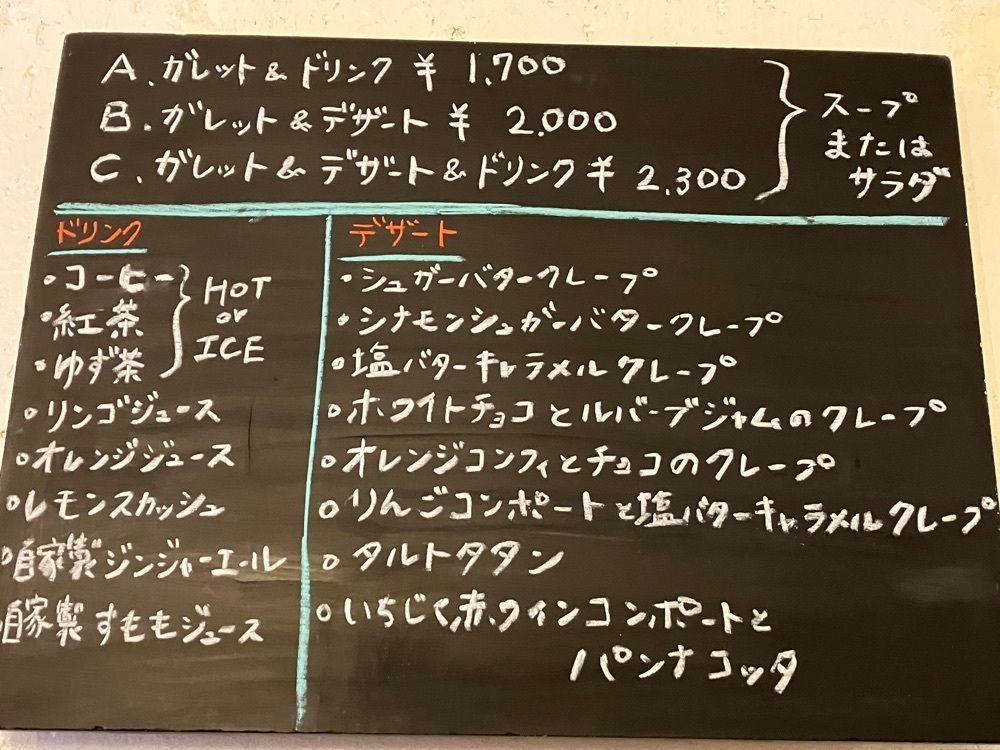 A. ガレット&ドリンク ¥ 1,700
B. ガレット&デザート ¥ 2,000
C. ガレット&デザート&ドリンク ¥ 2,300
スープ
または
サラダ
ドリンク
・コーヒー
・紅茶
・ゆず茶
HOT
or
ICE
・リンゴジュース
・オレンジジュース
・レモンスカッシュ
・自家製ジンジャーエール
自家製すももジュース
デザート
・シュガーバタークレープ
・シナモンシュガーバタークレープ
・塩バターキャラメルクレープ
・ホワイトチョコとルバーブジャムのクレープ
・オレンジコンフィとチョコのクレープ
・りんごコンポートと塩バターキャラメルクレープ
・タルトタタン
・いちじく赤ワインコンポートと
パンナコッタ